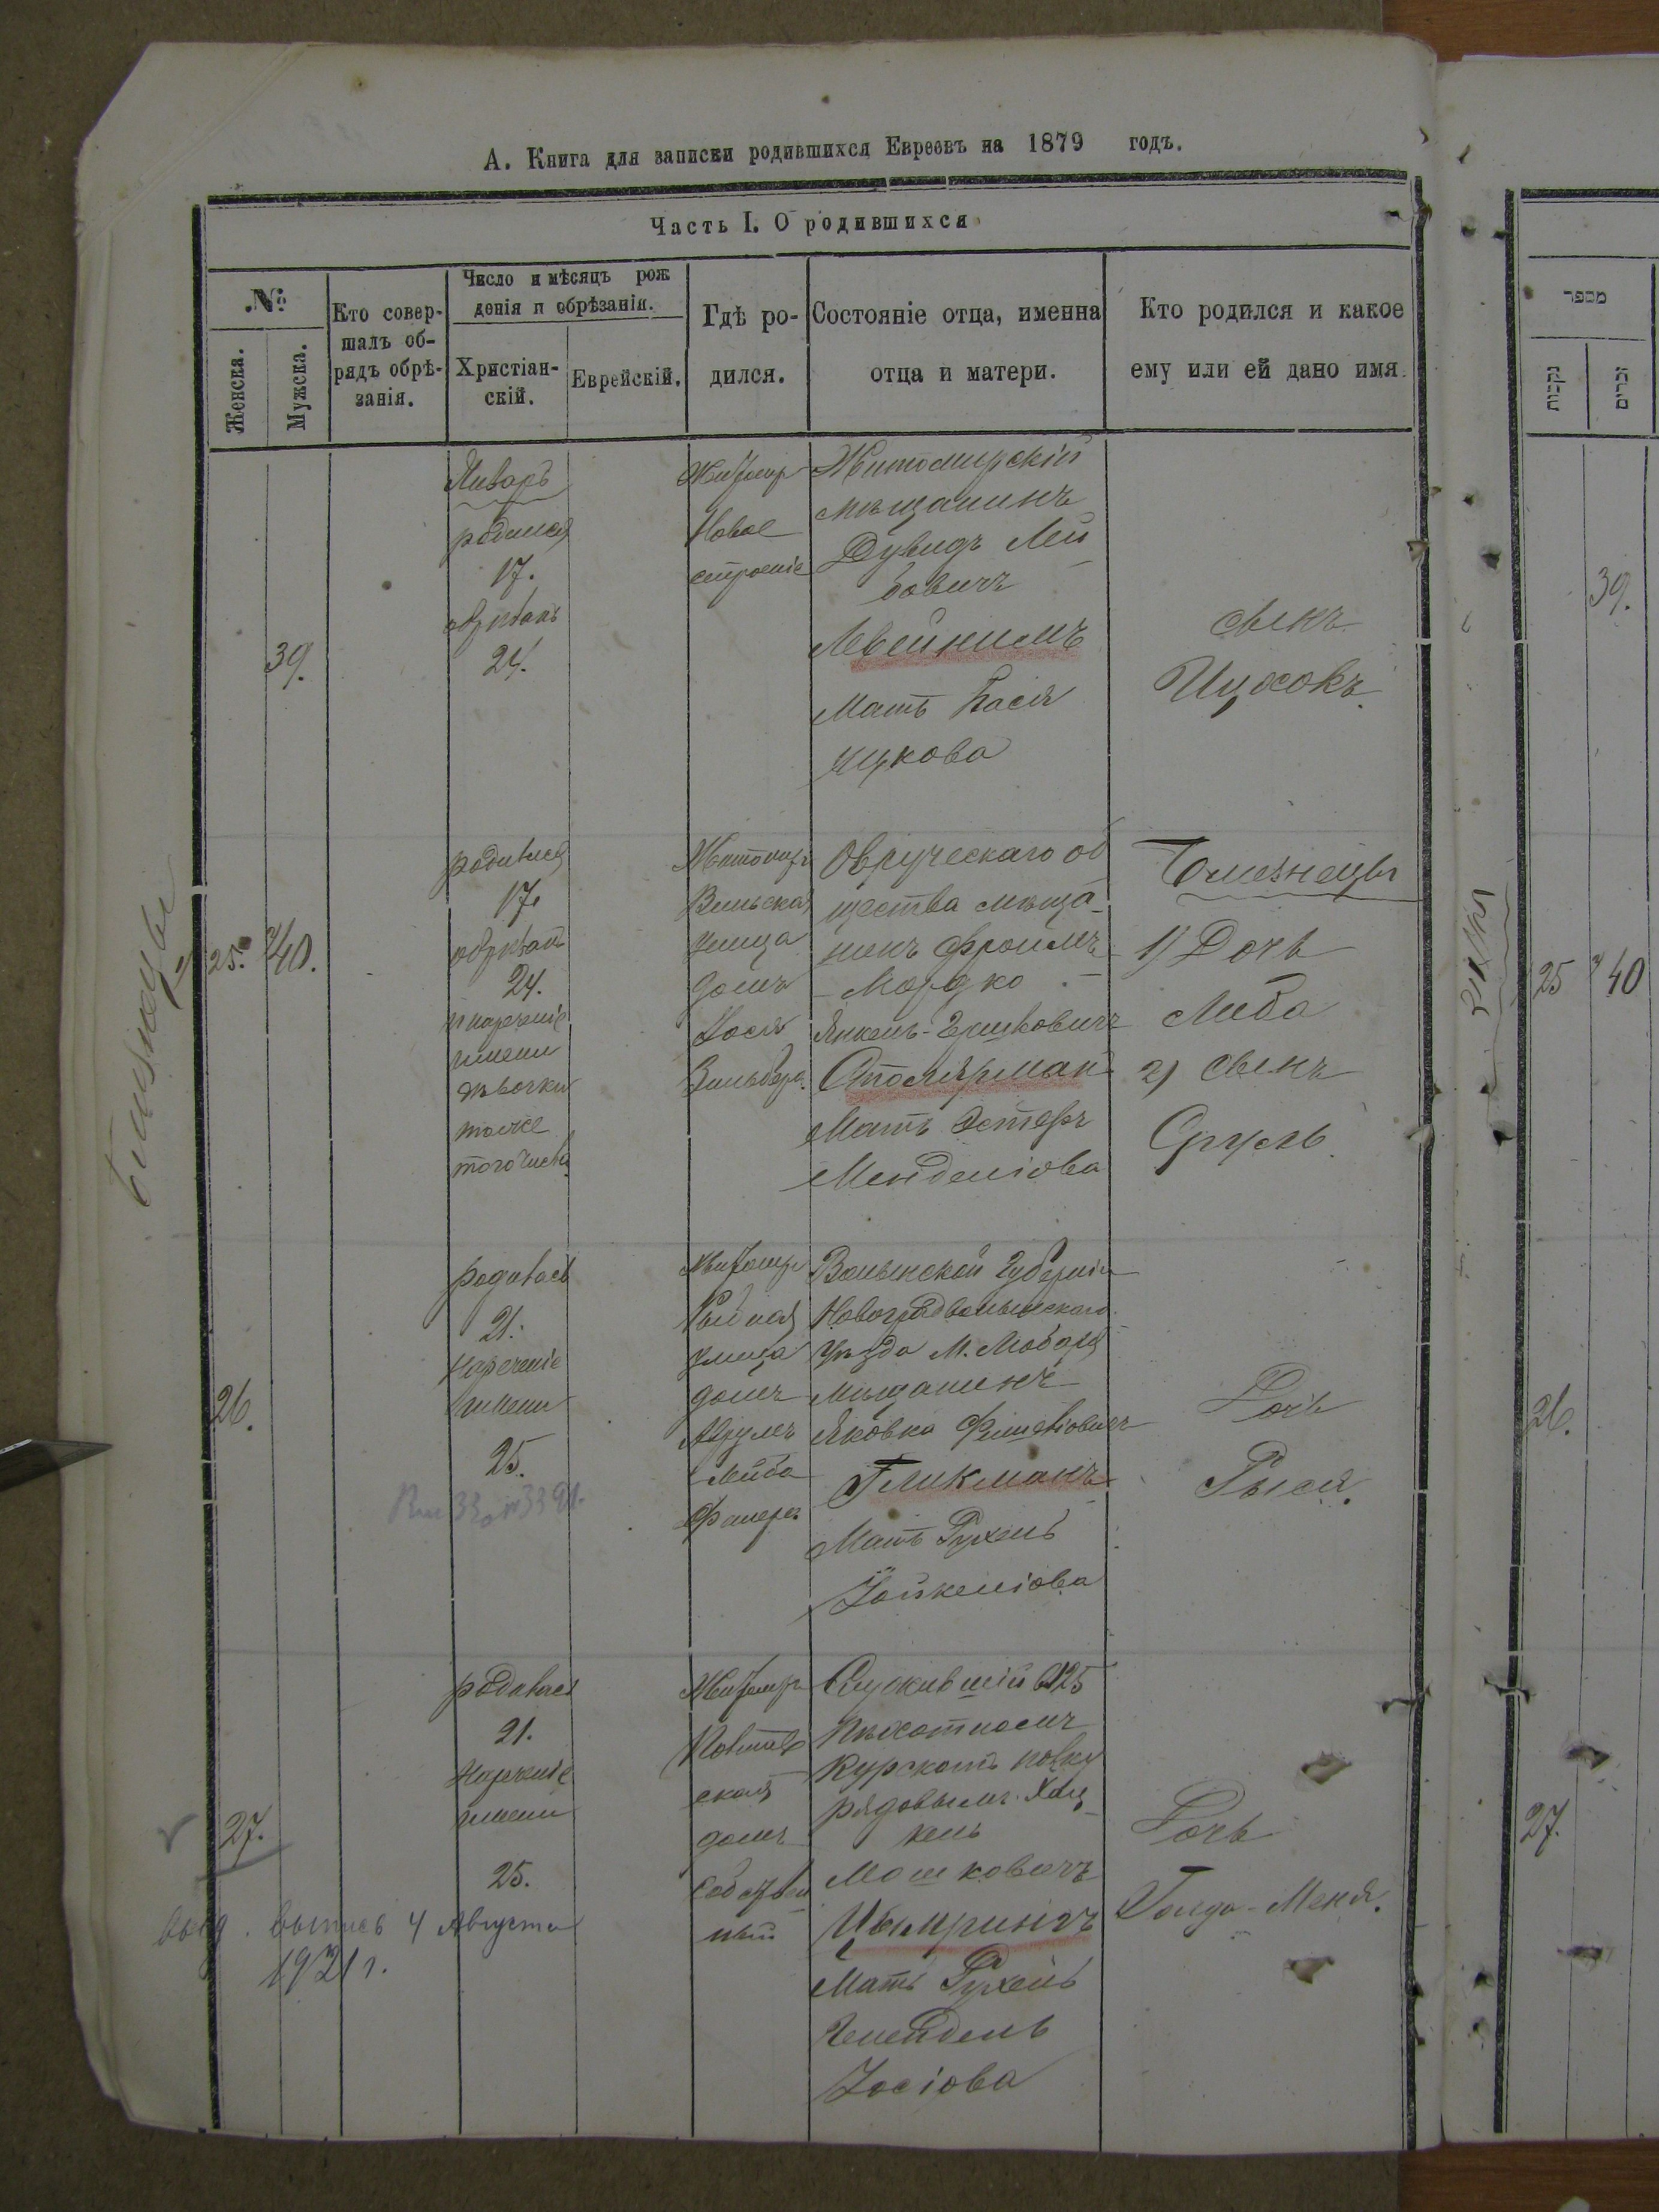 А. Книга для записки родившихся Евреевъ на 1879 годъ.
Часть I. О родившихся
№
Женска.
Мужска.
Кто совер-
шалъ об-
рядъ обрѣ-
занія.
Число и мѣсяцъ рож
денія и обрѣзанія.
Христіан-
скій.
Еврейскій.
Гдѣ ро-
дился.
Состояніе отца, именна
отца и матери.
Кто родился и какое
ему или ей дано имя.
39.
Январь
родился
17.
обрѣзанъ
24.
Житомир
Новое
строеніе
Житомирскій
мѣщанинъ
Дувидъ Лей
бовичъ
Левейнисъ
Мать Бася
Ицкова
сынъ
Ицхокъ.
Близнецы
25.
40.
родились
17.
обрѣзанъ
24.
и нареченіе
имени
дѣвочки
тоже
того числа
Житомиръ
Вильская
улица
домъ
Йося
Зильбер.
Овруческаго об
щества мѣща-
нинъ Фроимъ
Мордко
Янкель-Гершковичъ
Столярман
Мать Эстеръ
Менделіова
Близнецы
1) Дочь
Либа
2) сынъ
Сруль.
26.
родилась
21.
нареченіе
имени
25.
Житомиръ
Рыбная
улица
домъ
Аврумъ
Лейба
Волынской Губерніи
Новоградволынскаго
уѣзда М. Любара
мѣщанинъ
Яковка Фишеліовичъ
Гликманъ
Мать Рухель
Іойкеліова
Дочь
Рыся.
27.
родилась
21.
нареченіе
имени
25.
Житомиръ
ская
домъ
собствен
ный
Служившій в 125
пѣхотномъ
Курскомъ полку
рядовымъ Хац
кель
Мошковичъ
Цымрингъ
Мать Рухель
Генендель
Іосіова
Дочь
Голда-Меня.
выд. выпись 4 Августа
1921 г.
מספר
נקבות
זכרים
39.
25
40
26.
27.